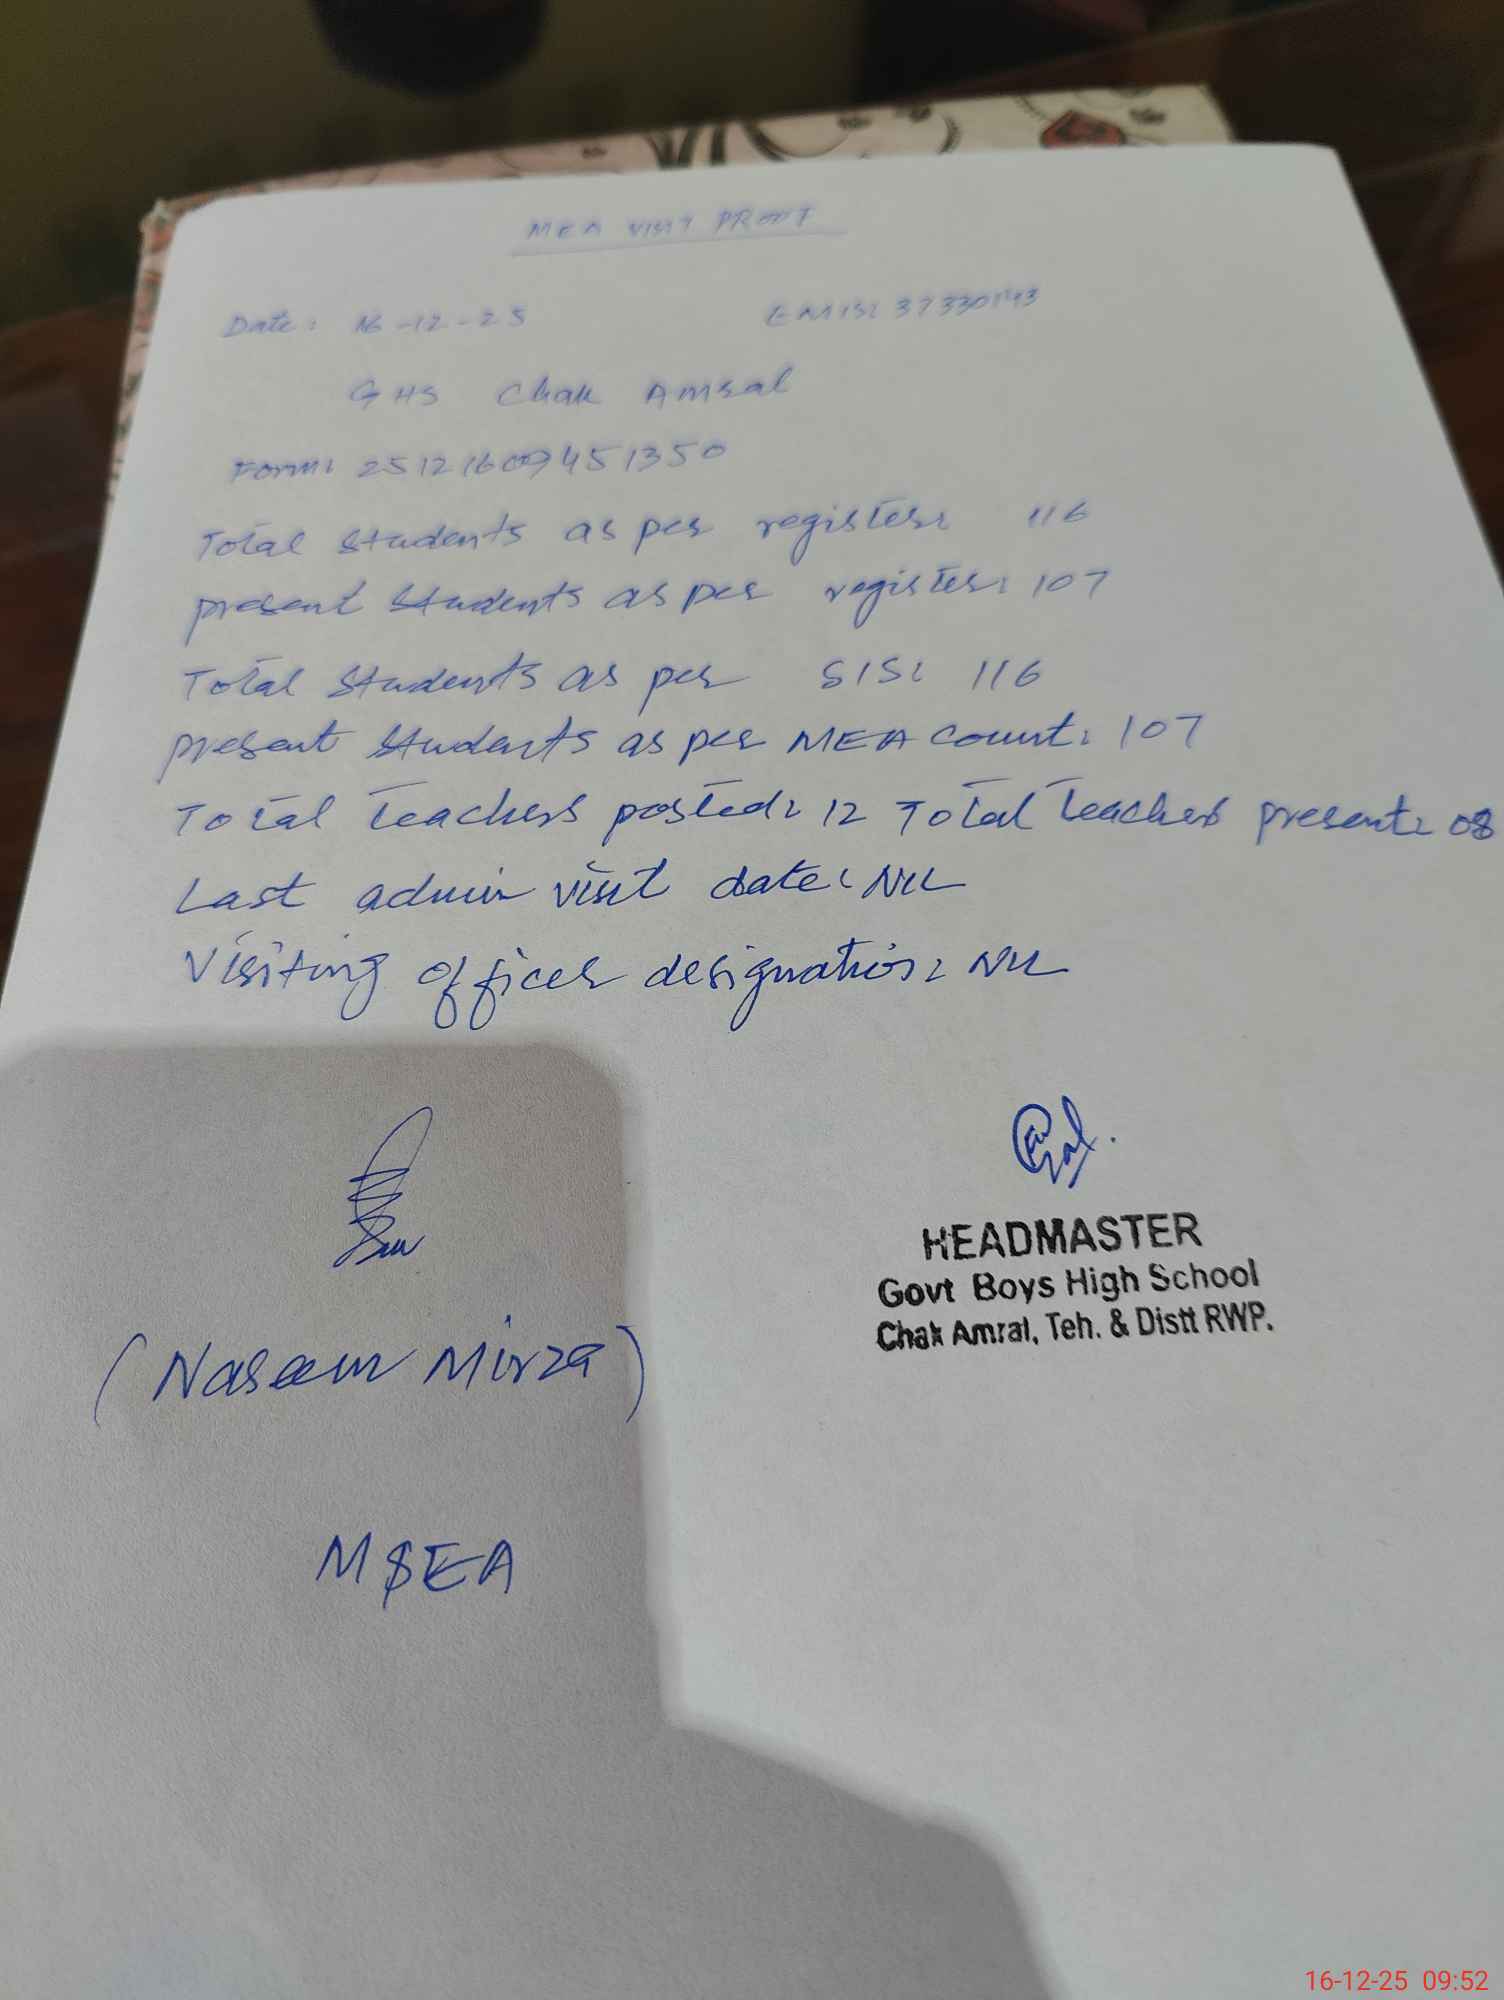 MEA VISIT PROOF
Date: 16-12-25 EMIS: 37330143
GHS Chak Amral
Form: 25121609451350
Total students as per register: 116
present students as per register: 107
Total students as per SIS: 116
present students as per MEA count: 107
Total teachers posted: 12 Total teacher present: 08
Last admin visit date: NIL
Visiting officer designation: NIL
(Naseem Mirza)
MEA
HEADMASTER
Govt Boys High School
Chak Amral, Teh. & Distt RWP.
16-12-25 09:52